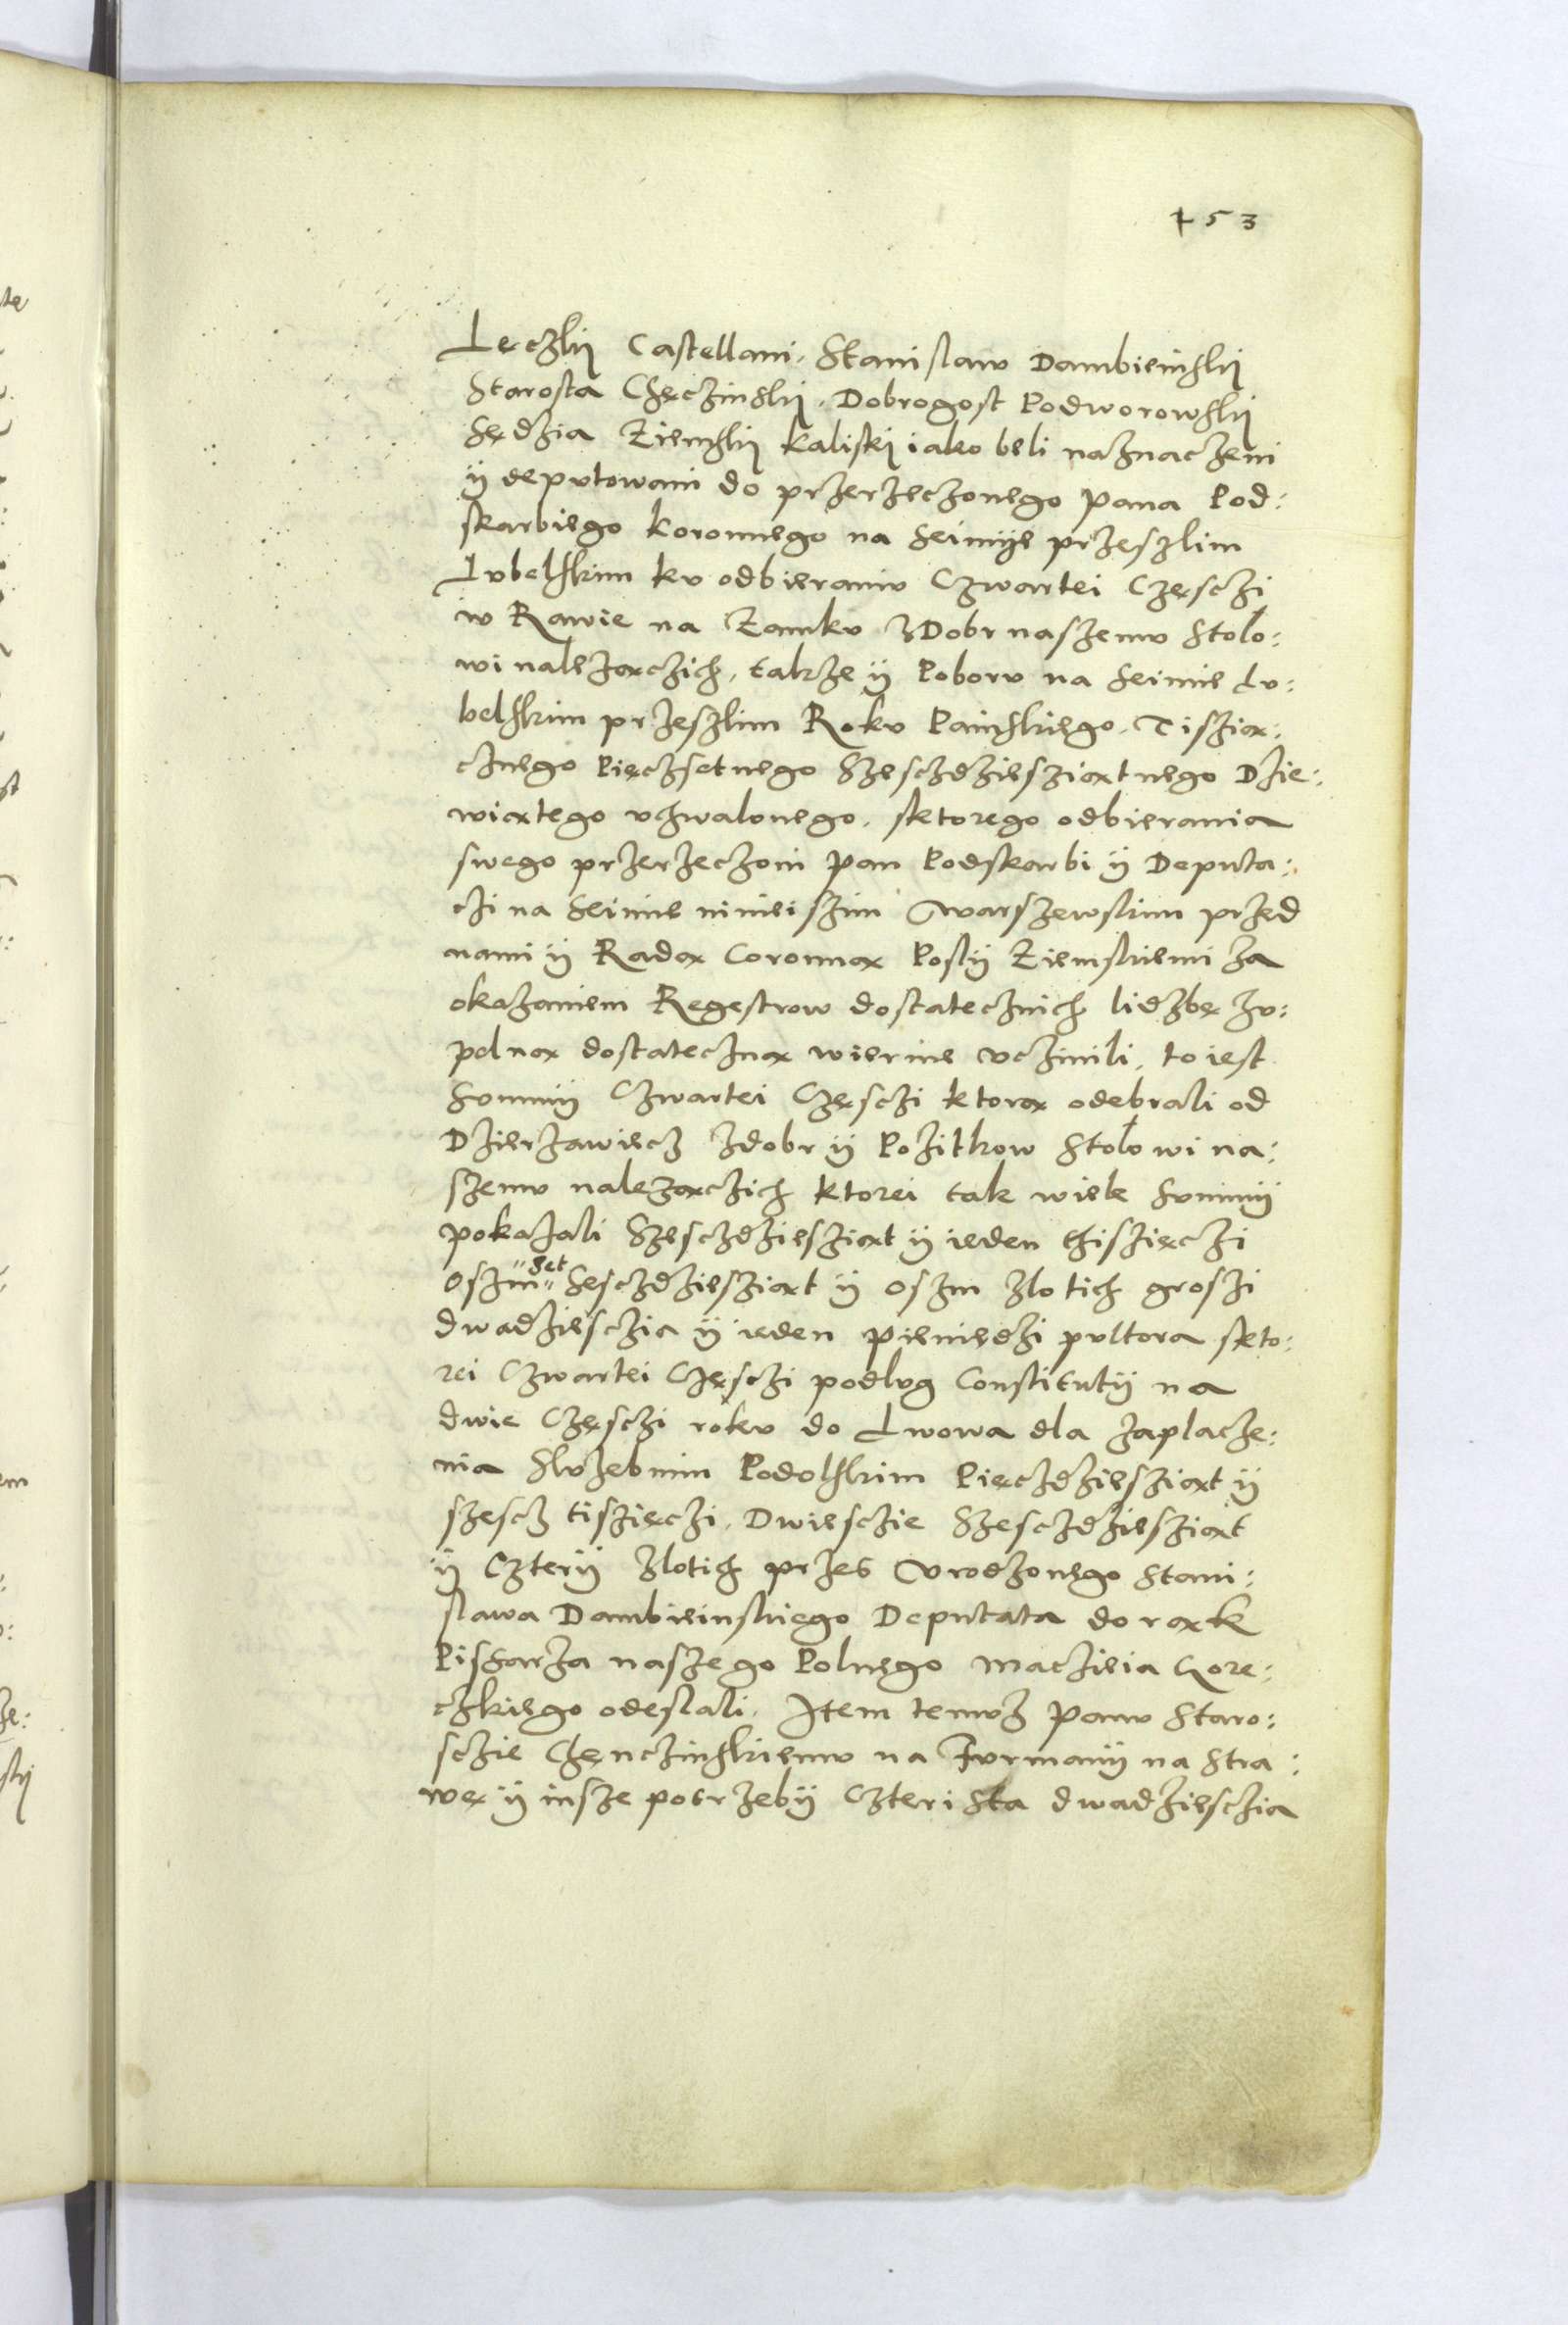 453
Lęczkÿ Castellani. Stanislaw Dambieinskÿ
Starosta Chęczinskÿ. Dobrogost Podworowskÿ
Sędzia Ziemskÿ kaliskÿ iako beli naznaczeni
ÿ deputowani do przerzeczonego pana Pod:
skarbiego koronnego na seimÿe przeszlim
Lvbelskim kv odbieraniv Czwartei Częsczi
w Rawie na Zamkv z Dobr naszemv stolo:
wi nalezaczich, takze ÿ Poborv na seimie Lv:
belskim przeszlim Rokv Painskiego. Tiszia:
cznego Pięczsetnego Szesczdziesziatnego Dzie:
wiatego vchwalonego. sktorego odbierania
swego przerzeczoni pan Podskarbi ÿ Deputa:
czi na seimie ninieiszim Warszewskim przed
nami ÿ Rada Coronna Poslÿ Ziemskiemi za
okazaniem Regestrow dostatecznich lidzbę zv:
pelna dostateczna wiernie vczinili, to iest
svmmÿ Czwartei Częsczi ktora odebrali od
Dzierzawiecz zdobr ÿ Pozitkow stolowi na:
szemv nalezaczich ktorei tak wiele svmmÿ
pokazali Szesczdziesziat ÿ ieden thiszięczi
Oszm set Sesczdziesziat ÿ oszm zlotich groszi
dwadziesczia ÿ ieden pieniedzi pvltora skto:
rei Czwartei Częsczi podlvg Constitutÿ na
dwie Częsczi rokv do Lwowa dla zaplacze:
nia Slvzebnim Podolskim Pięczdziesziat ÿ
szescz tiszięczi. Dwiesczie Szesczdziesziat
ÿ Czterÿ zlotich przes Vrodzonego Stani:
slawa Dambieinskiego Deputata do rak
Pissarza naszego Polnego Maczieia Gore:
czkiego odeslali. Item temvz panv Staro:
sczie Chęnczinskiemv na Fvrmanÿ na Stra:
wę ÿ insze potrzebÿ Czterista dwadziesczia